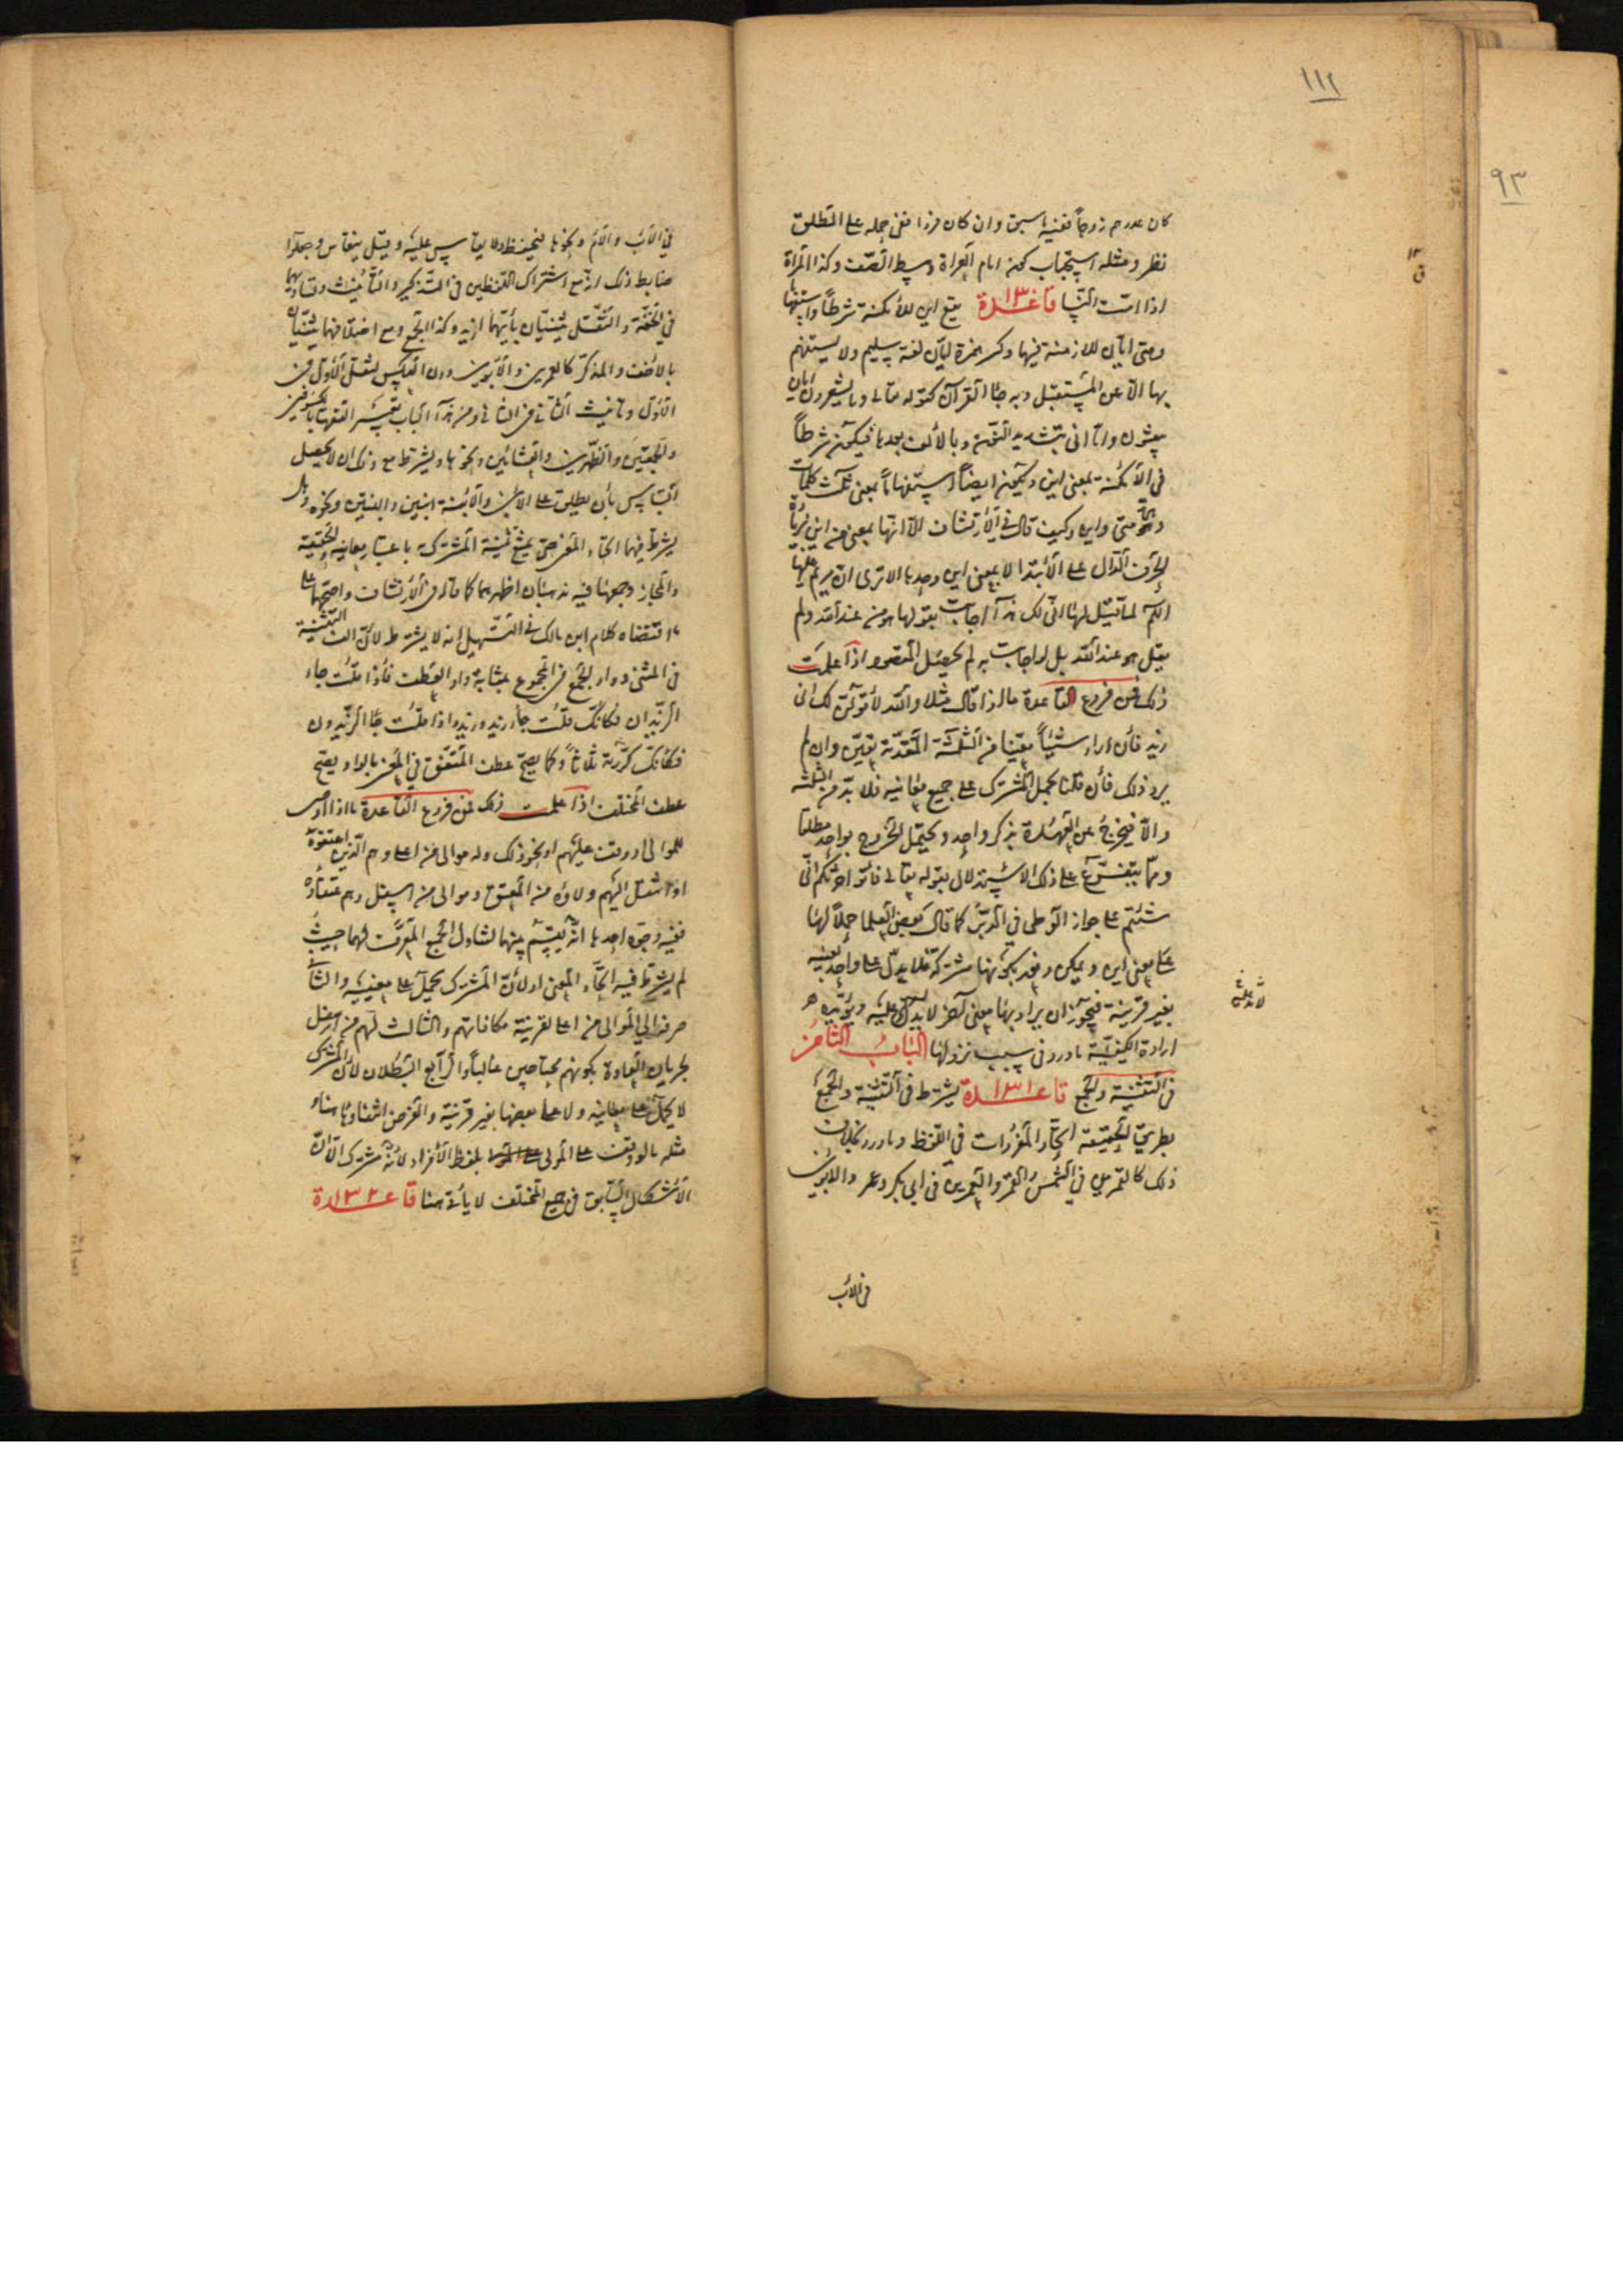 ١١٢
٩٣
كان عددهم زوجاً ففيه ما سبق وان كان فردا ففى حمله على المطلق
نظر ومثله استحباب كون امام العراة وسط الصف وكذا المرأة
اذا امت النسا قاعدة ١٣٠ تقع اين للأمكنة شرطاً واستفهاما
ومتى وايان للازمنة فيهما وكسر همزة ايان لغة سليم ولا يستفهم
بها الا عن المستقبل وبه جاء القرآن كقوله تعالى وما يشعرون ايان
يبعثون واما انى بتشديد النون وبالألف بعدها فيكون شرطاً
فى الأمكنة بمعنى اين ويكون ايضاً استفهاماً بمعنى ثلث كلمات
وهى متى واين وكيف قال فى الأرتشاف الا انها بمعنى من اين بزيادة
الحرف الدال على الأبتدا لا بمعنى اين وحدها الا ترى ان مريم عليها
السلم لما قيل لها انى لك هذا اجابت بقولها هو من عند الله ولم
يقل هو عند الله بل لو اجابت به لم يحصل المقصود اذا علمت
ذلك فمن فروع القاعدة ما لو اذا قال مثلا والله لأقولن لك انى
زيد فأن اراد شيئاً معينا من الثلثة المتقدمة تعين وان لم
يرد ذلك فأن قلنا بحمل المشترك على جميع معانيه فلا بد من الثلثة
والا فيخرج عن العهدة بذكر واحد ويحتمل الخروج بواحد مطلقا
ومما يتفرع على ذلك الاستدلال بقوله تعالى فأتوا حرثكم انى
شئتم على جواز الوطى فى الدبر كما قال بعض العلما حملا لها
على معنى اين ويمكن دفعه بكونها مشتركة فلا يدل على واحد بعينه
بغير قرينة فيجوز ان يراد بها معنى آخر لا يدل عليه ويؤيده
ارادة الكيفية ما ورد فى سبب نزولها الباب الثامن
فى التثنية والجمع قاعدة ١٣١ يشترط فى التثنية والجمع
بطريق الحقيقة اتحاد المفردات فى اللفظ وما ورد بخلاف
ذلك كالقمرين فى الشمس والقمر والعمرين فى ابى بكر وعمر والابوين
فى الأب
فى الأب والأم ونحوها فيحفظ ولا يقاس عليه وقيل ينقاس وجعلوا
ضابط ذلك انه مع اشتراك اللفظين فى التذكير والتأنيث وتساويهما
فى الخفة والثقل يثنيان بأيهما اريد وكذا الجمع ومع اختلافهما يثنيان
بالأخف والمذكر كالعمرين والأبوين دون العكس لثقل الأول فى
الأول وتأنيث الثانى فى الثانى ومن هذا الباب تعبير الفقهاء
والجمعتين والظهرين والعشائين ونحوها ويشترط مع ذلك ان لا يحصل
التباس بأن يطلق على الابن والابنة ابنين والبنتين ونحوه وهل
يشترط فيهما اتحاد المعنى حتى يمتنع تثنية المشترك باعتبار معانيه والحقيقة
والمجاز وجمعها فيه مذهبان اظهرهما كما قاله فى الأرتشاف واصحهما على
ما اقتضاه كلام ابن مالك فى التسهيل انه لا يشترط لأن الف التثنية
فى المثنى وواو الجمع فى المجموع بمثابة واو العطف فأذا قلت جاء
الزيدان فكأنك قلت جاء زيد وزيد واذا قلت جاء الزيدون
فكأنك كررته ثلاثاً وكما يصح عطف المتفق فى المعنى بالواو يصح
عطف المختلف اذا علمت ذلك فمن فروع القاعدة ما اذا اوصى
للموالى او وقف عليهم او نحو ذلك وله موالى من اعلى وهم الذين اعتقوه
او انتقل اليهم ولاؤه من المعتق وموالى من اسفل وهم عتقاؤه
ففيه وجوه احدها انه يقسم بينهما لتناول الجمع المعرف لهما حيث
لم يشترط فيه اتحاد المعنى او لأن المشترك يحمل على معنييه والثانى
صرفه الى الموالى من اعلى لقرينة مكافاتهم والثالث لهم من اسفل
لجريان العادة بكونهم محتاجين غالباً والرابع البطلان لأن المشترك
لا يحمل على معانيه ولا على بعضها بغير قرينة والفرض انتفاؤها هنا
مثله ما لو وقف على المولى بلفظ الأفراد لأنه مشترك الا ان
الأشكال السابق فى جمع المختلف لا يأتى هنا قاعدة ١٣٢